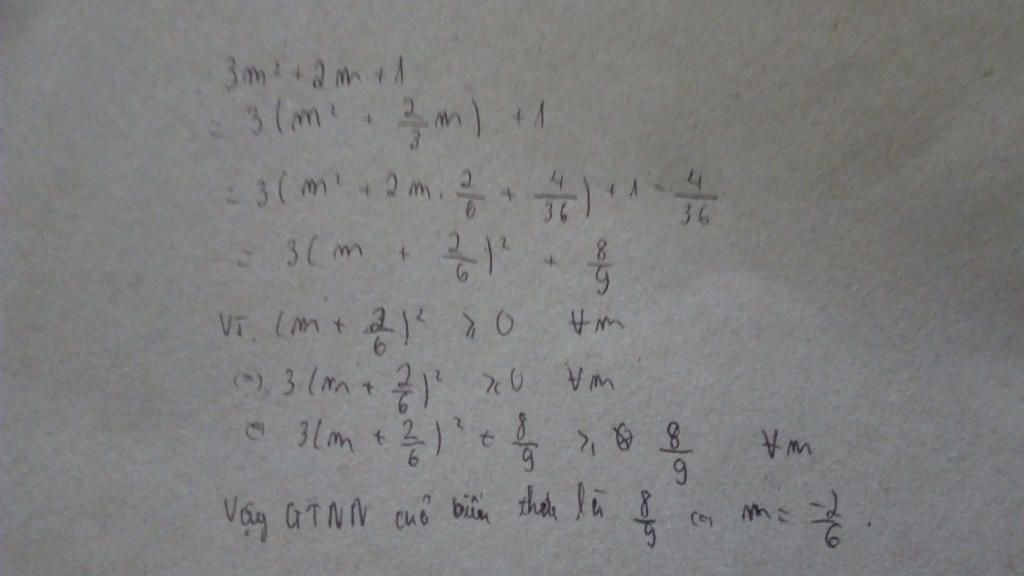 3m² + 2m + 1
= 3(m² + 2/3 m) + 1
= 3(m² + 2m . 2/6 + 4/36) + 1 - 4/36
= 3(m + 2/6)² + 8/9
Vì (m + 2/6)² ≥ 0 ∀m
⇔ 3(m + 2/6)² ≥ 0 ∀m
⇔ 3(m + 2/6)² + 8/9 ≥ 8/9 ∀m
Vậy GTNN cuả biểu thức là 8/9 ⇔ m = -2/6.